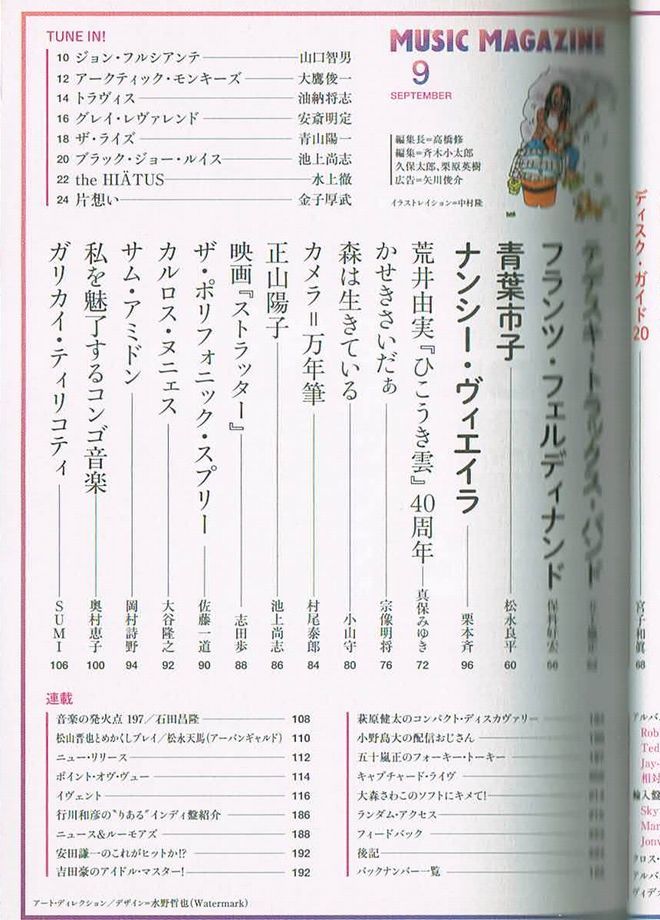 TUNE IN!
10 ジョン・フルシアンテ 山口智男
12 アークティック・モンキーズ 大鷹俊一
14 トラヴィス 油納将志
16 グレイ・レヴァレンド 安斎明定
18 ザ・ライズ 青山陽一
20 ブラック・ジョー・ルイス 池上尚志
22 the HIATUS 水上徹
24 片想い 金子厚武
MUSIC MAGAZINE
9
SEPTEMBER
編集長=高橋修
編集=斉木小太郎
久保太郎、栗原英樹
広告=矢川俊介
イラストレイション=中村隆
ディスク・ガイド20 宮子和眞 68
テデスキ・トラックス・バンド
フランツ・フェルディナンド 保科好宏 66
青葉市子 松永良平 60
ナンシー・ヴィエイラ 栗本斉 96
荒井由実『ひこうき雲』40周年 真保みゆき 72
かせきさいだぁ 宗像明将 76
森は生きている 小山守 80
カメラ=万年筆 村尾泰郎 84
正山陽子 池上尚志 86
映画『ストラッター』 志田歩 88
ザ・ポリフォニック・スプリー 佐藤一道 90
カルロス・ヌニェス 大谷隆之 92
サム・アミドン 岡村詩野 94
私を魅了するコンゴ音楽 奥村恵子 100
ガリカイ・ティリコティ SUMI 106
連載
音楽の発火点 197/石田昌隆 108
松山晋也とめかくしプレイ/松永天馬(アーバンギャルド) 110
ニュー・リリース 112
ポイント・オヴ・ヴュー 114
イヴェント 116
行川和彦の“りある”インディ盤紹介 186
ニュース&ルーモアズ 188
安田謙一のこれがヒットか!? 192
吉田豪のアイドル・マスター! 192
萩原健太のコンパクト・ディスカヴァリー
小野島大の配信おじさん
五十嵐正のフォーキー・トーキー
キャプチャード・ライヴ
大森さわこのソフトにキメて!
ランダム・アクセス
フィードバック
後記
バックナンバー一覧
アート・ディレクション/デザイン=水野哲也(Watermark)
アルバ
Rob
Ted
Jay-
相対
輸入盤
Sky
Mar
Jonv
クロス・
アルバ
ヴィデ